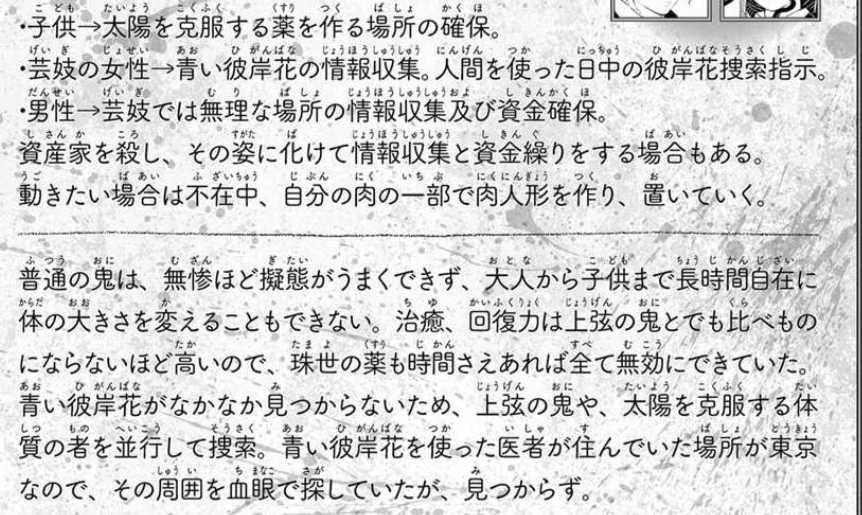 ・子供→太陽を克服する薬を作る場所の確保。
・芸妓の女性→青い彼岸花の情報収集。人間を使った日中の彼岸花捜索指示。
・男性→芸妓では無理な場所の情報収集及び資金確保。
資産家を殺し、その姿に化けて情報収集と資金繰りをする場合もある。
動きたい場合は不在中、自分の肉の一部で肉人形を作り、置いていく。
普通の鬼は、無惨ほど擬態がうまくできず、大人から子供まで長時間自在に
体の大きさを変えることもできない。治癒、回復力は上弦の鬼とでも比べもの
にならないほど高いので、珠世の薬も時間さえあれば全て無効にできていた。
青い彼岸花がなかなか見つからないため、上弦の鬼や、太陽を克服する体
質の者を並行して捜索。青い彼岸花を使った医者が住んでいた場所が東京
なので、その周囲を血眼で探していたが、見つからず。